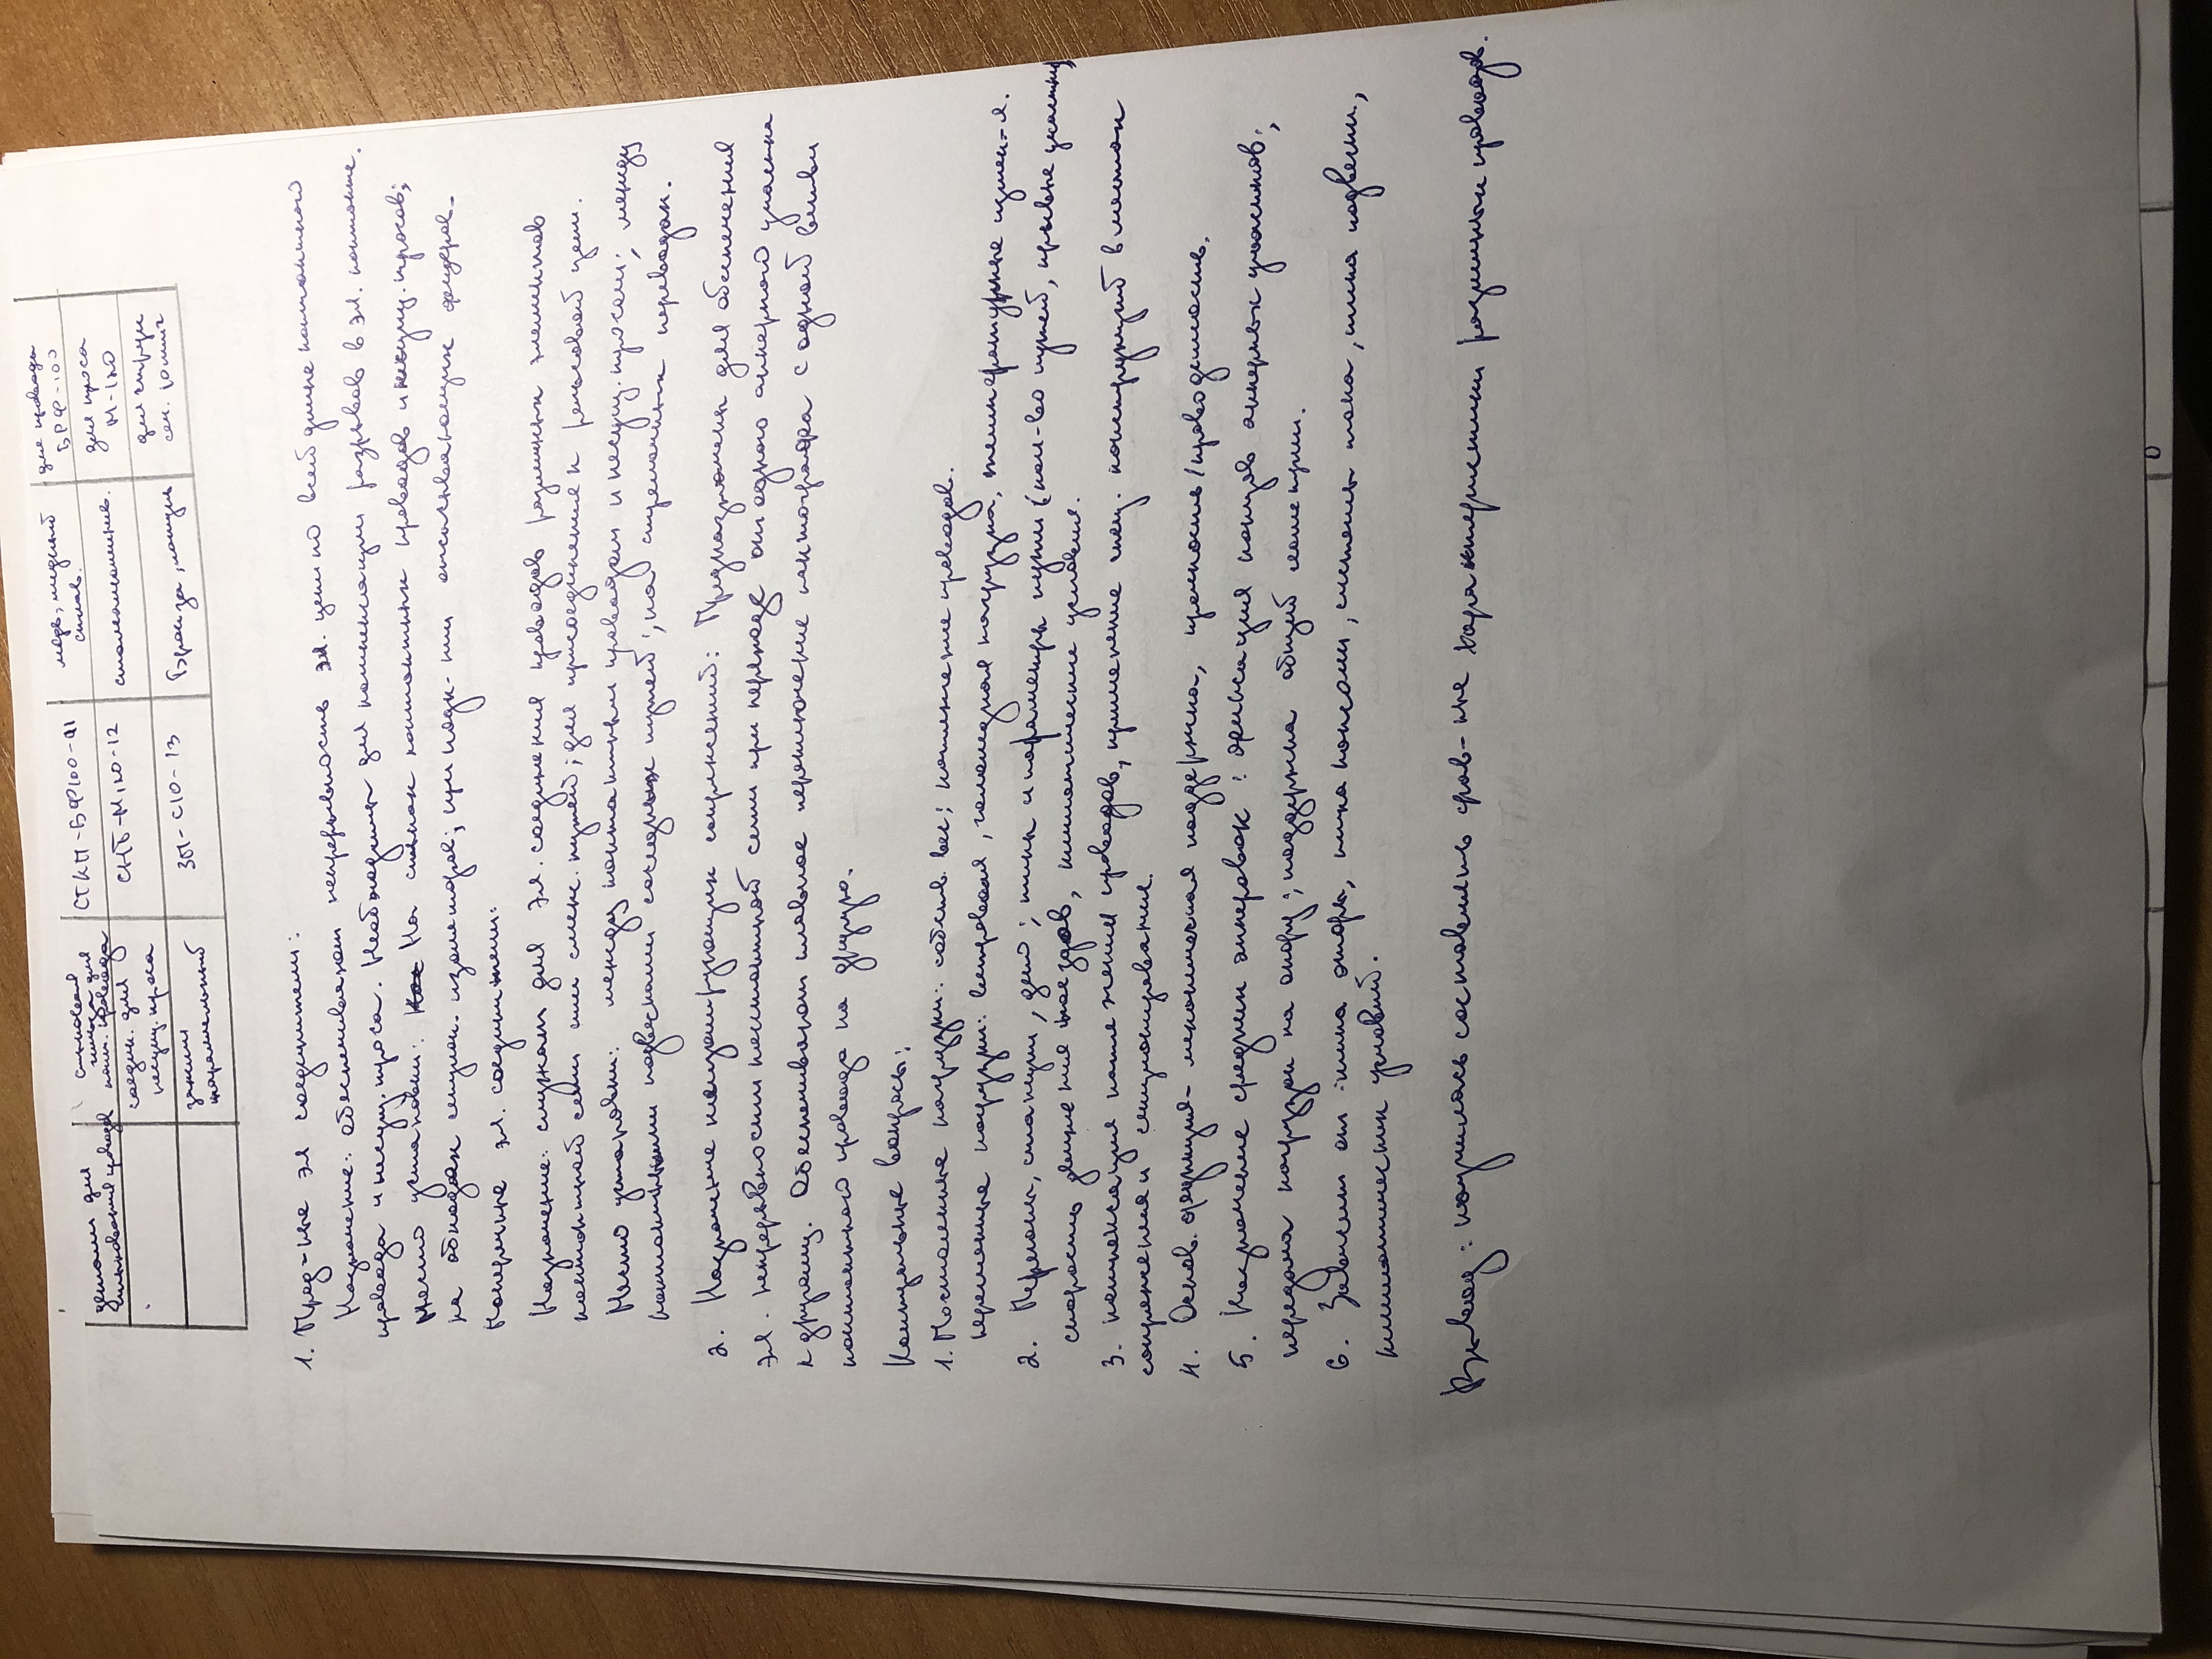 детали для стыкования проводов | стыковая клемма для конт. провода | СТКП-БФ100-01 | медь, медный сплав. | для провода БРФ-100
соедин. для несущ. троса | СНТ-М120-12 | сталемедные. | для троса М-120
зажим параллельный | ЗП-С10-13 | Бронза, латунь | для струн сеч. 10 мм²
1. Прод-ные эл соединители:
Назначение: обеспечивают непрерывность эл. цепи по всей длине контактного
провода и несущ. троса. Необходимы для компенсации разрывов в эл. контакте.
Место установки: На стыках контактных проводов и несущ. тросов;
на обводах секцион. изоляторов; при подк-нии отсасывающих фидеров.
Поперечные эл. соединители:
Назначение: служат для эл. соединения проводов различных элементов
контактной сети или смежн. путей; для присоединения к рельсовой цепи.
Место установки: между контактными проводами и несущ. тросами; между
контактными подвесками соседних путей; над стрелочных переводах.
2. Назначение неизолирующих сопряжений: Предназначены для обеспечения
эл. непрерывности контактной сети при переходе от одного анкерного участка
к другому. Обеспечивают плавное переключение пантографа с одной ветви
контактного провода на другую.
Контрольные вопросы:
1. Постоянные нагрузки: собств. вес; натяжение проводов.
переменные нагрузки: ветровая, гололедная нагрузка, температурные измен-я.
2. Перегоны, станции, депо; типы и параметры пути (кол-во путей, кривые участки),
скорость движения поездов, климатические условия.
3. компенсация натяжения проводов, применение спец. конструкций в местах
сопряжения и секционирование.
4. Основ. функция - механическая поддержка, крепость/проводимость.
5. Назначение средних анкеровок: фиксация концов анкерных участков;
передача нагрузки на опору; поддержка общей геометрии.
6. Зависит от: типа опоры, типа консоли, системы тока, типа подвески,
климатических условий.
Вывод: научилась составлять срав-ные характеристики различных проводов.